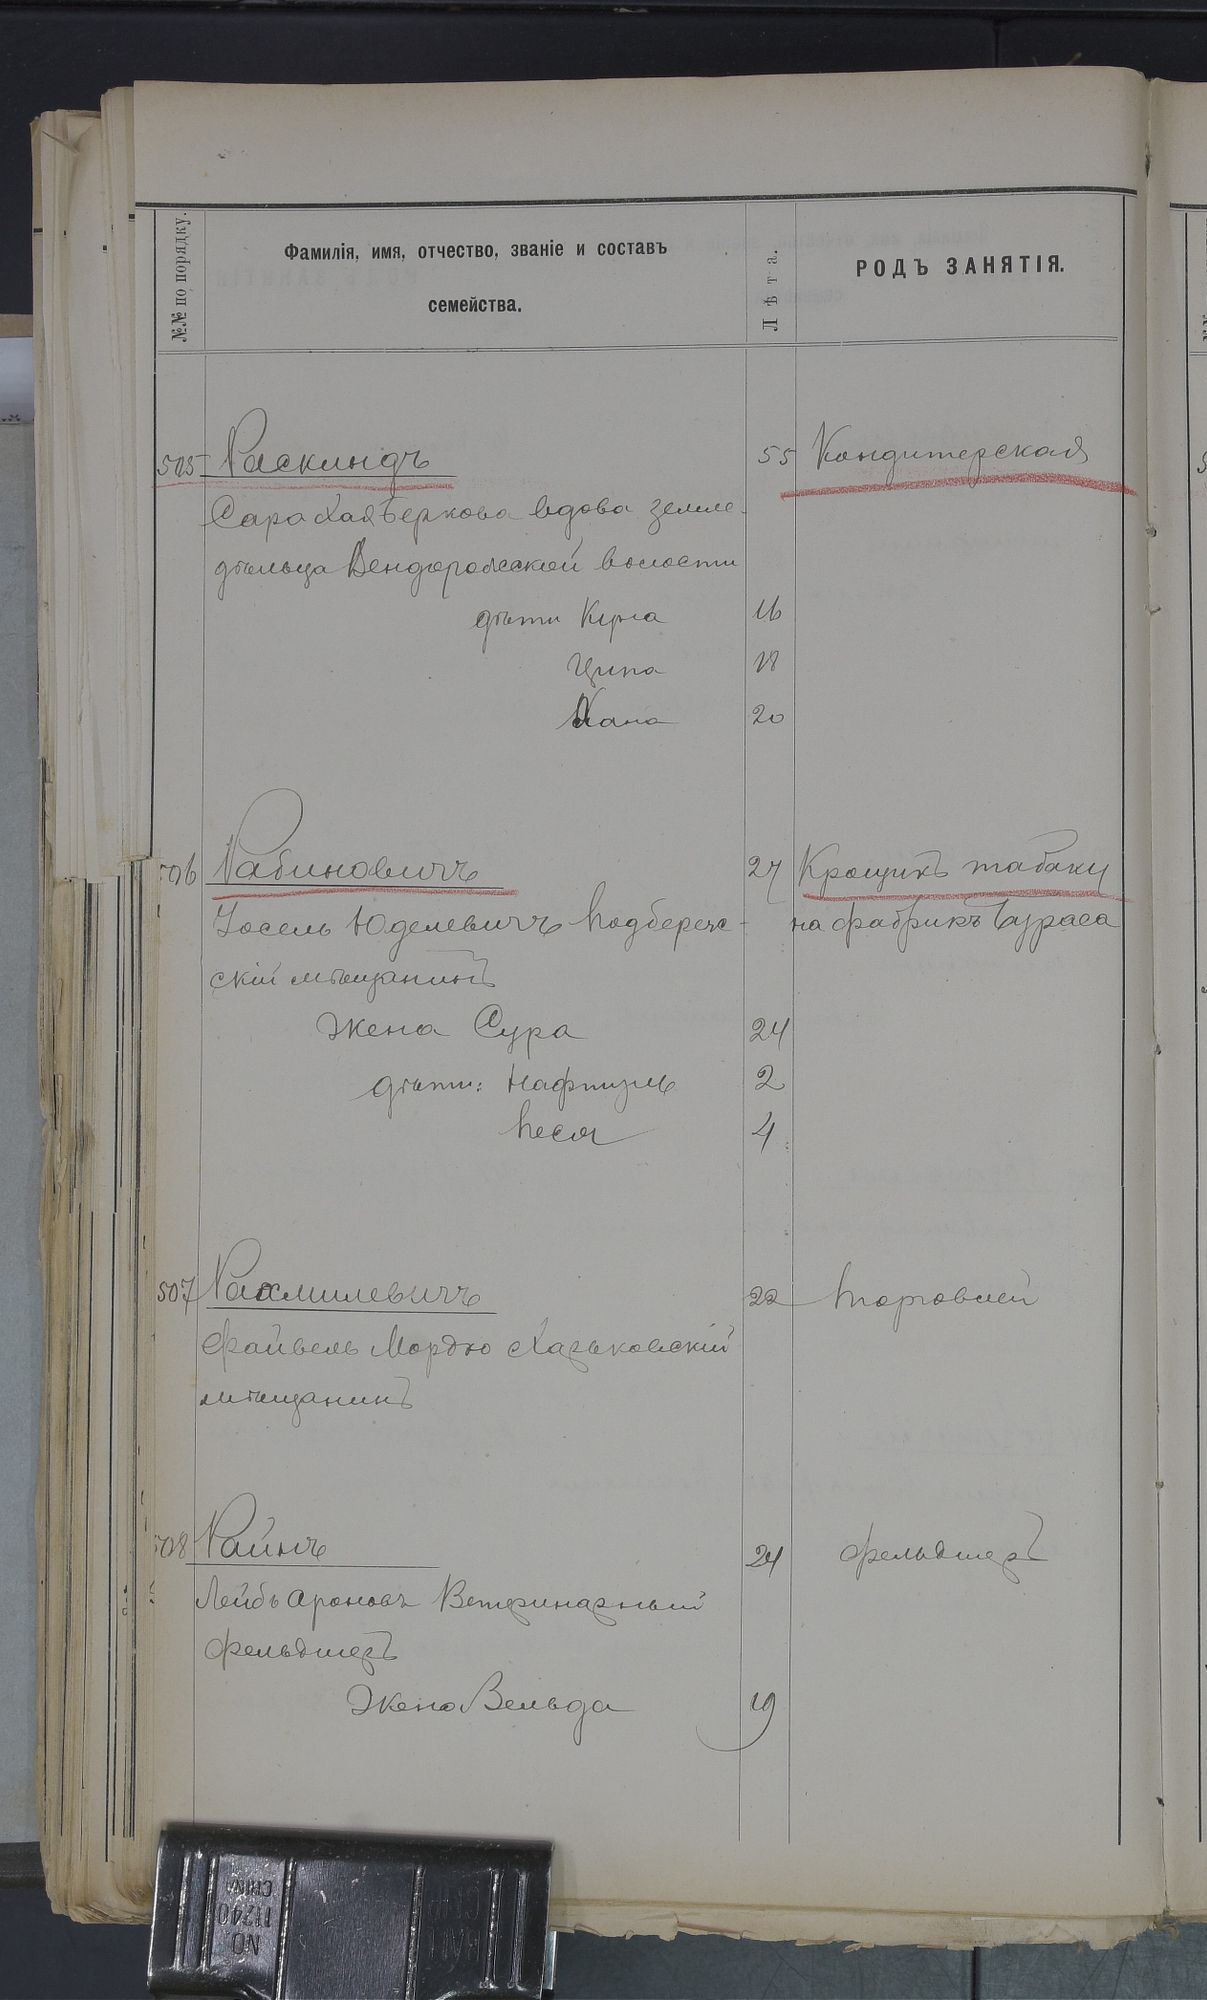 №№ по порядку. Фамилія, имя, отчество, званіе и составъ семейства. Лѣта. РОДЪ ЗАНЯТІЯ.
505 Раскиндъ 55 Кондитерская
Сара Хая Беркова вдова земле-
дѣльца волости
дѣти 16
Ципа 18
Хана 20
506 Рабиновичъ 27 Крощикъ табаку
Іосель Юделевичъ Подберез- на фабрикѣ Дураса
скій мѣщанинъ
Жена Сура 24
дѣти: Нафтуль 2
Песя 4
507 Рахмилевичъ 22 Торговлей
Файвель Мордхо Харьковскій
мѣщанинъ
508 Райнъ 24 фельдшеръ
Лейбъ Ароновъ Ветеринарный
фельдшеръ
Жена Вельда 19
NO
11240
CHIN